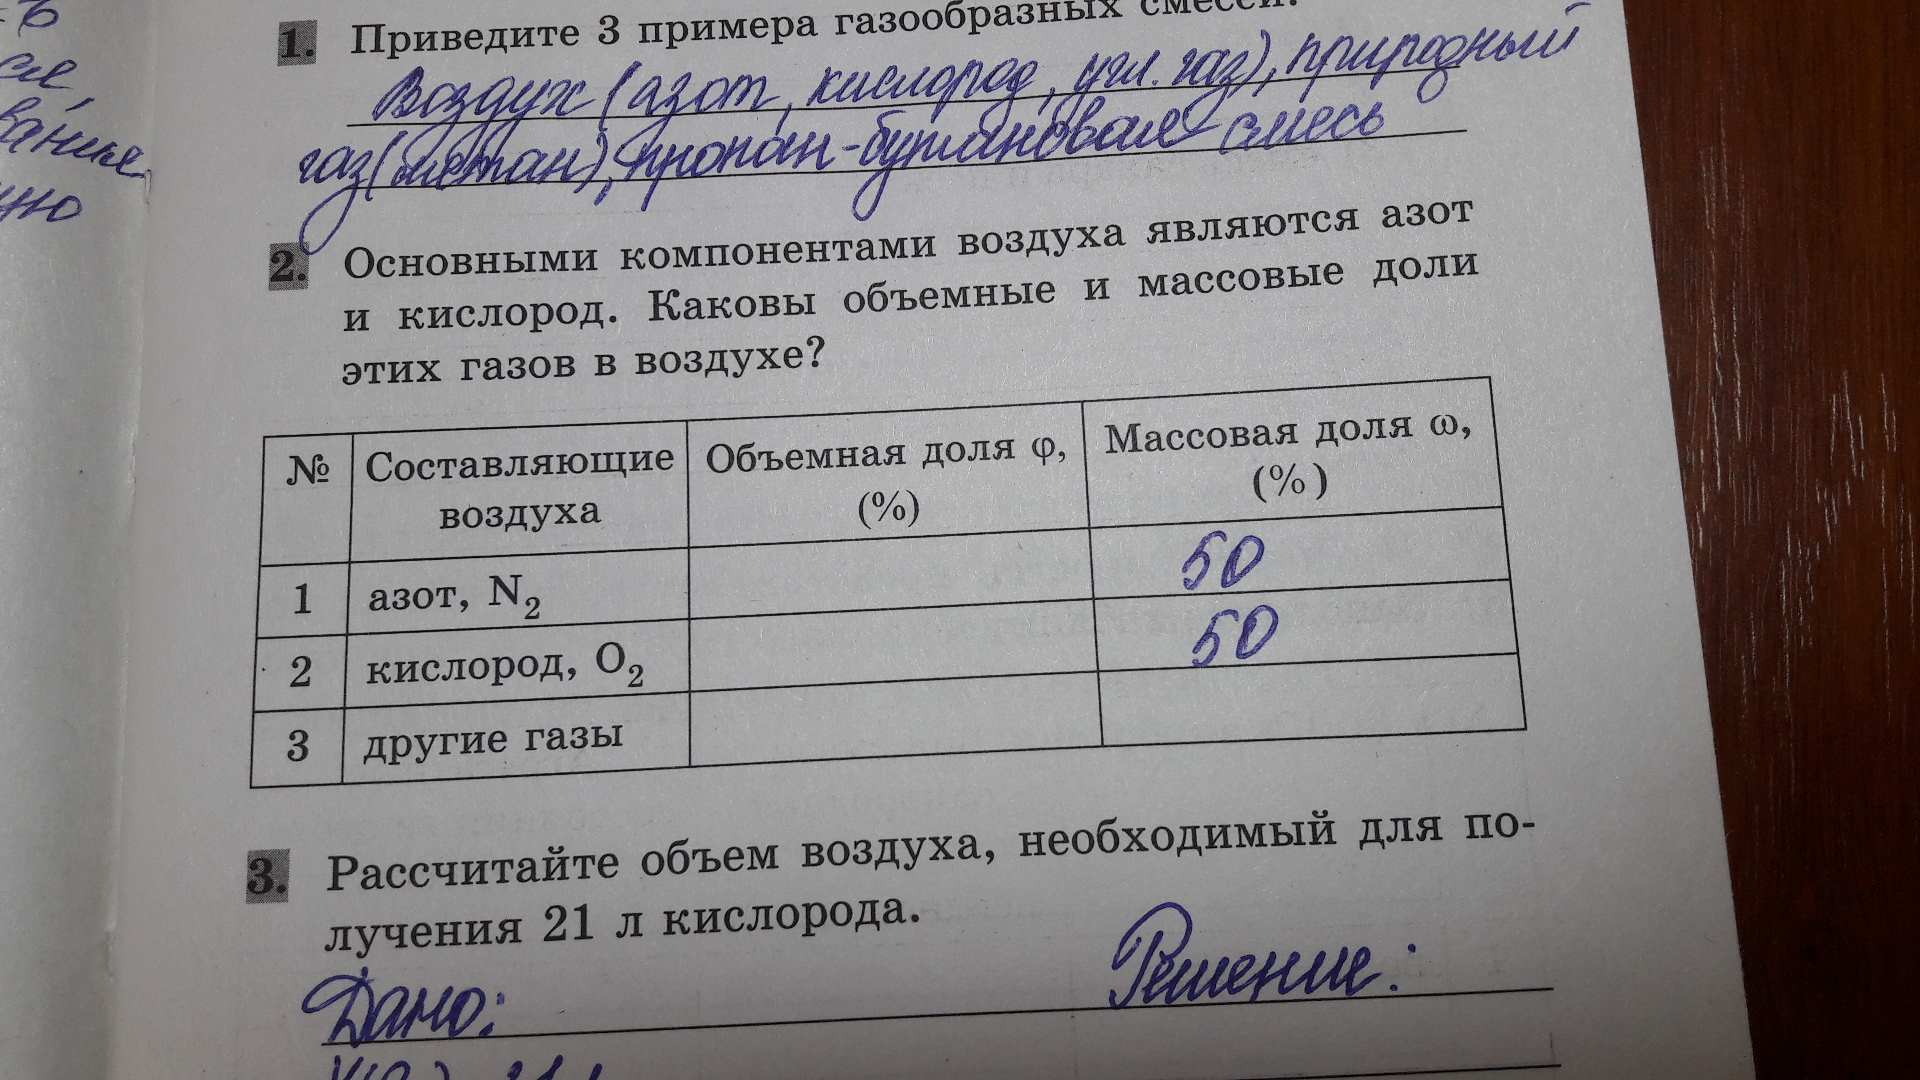 1. Приведите 3 примера газообразных смесей.
Воздух (азот, кислород, угл. газ), природный
газ (метан), пропан-бутановая смесь
2. Основными компонентами воздуха являются азот
и кислород. Каковы объемные и массовые доли
этих газов в воздухе?
№ Составляющие воздуха Объемная доля φ, (%) Массовая доля ω, (%)
1 азот, N₂ 50
2 кислород, O₂ 50
3 другие газы
3. Рассчитайте объем воздуха, необходимый для по-
лучения 21 л кислорода.
Дано: Решение: